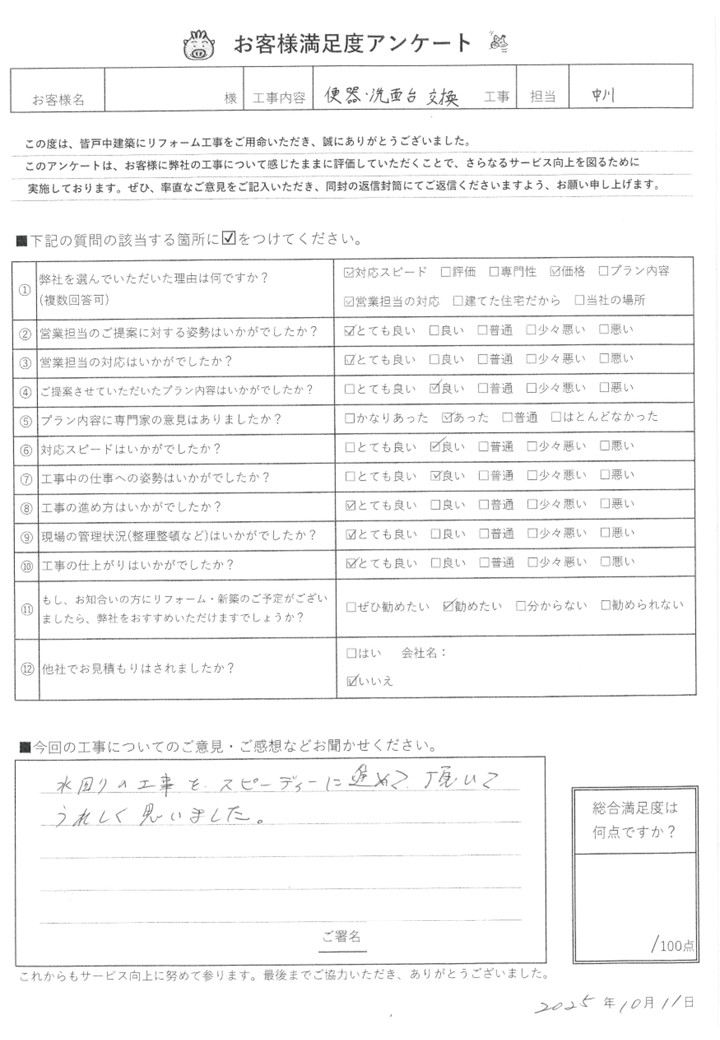 お客様満足度アンケート
お客様名 様 工事内容 便器・洗面台 交換 工事 担当 中川
この度は、皆戸中建築にリフォーム工事をご用命いただき、誠にありがとうございました。
このアンケートは、お客様に弊社の工事について感じたままに評価していただくことで、さらなるサービス向上を図るために
実施しております。ぜひ、率直なご意見をご記入いただき、同封の返信封筒にてご返信くださいますよう、お願い申し上げます。
■下記の質問の該当する箇所に☑をつけてください。
① 弊社を選んでいただいた理由は何ですか？
(複数回答可)
☑対応スピード □評価 □専門性 ☑価格 □プラン内容
☑営業担当の対応 □建てた住宅だから □当社の場所
② 営業担当のご提案に対する姿勢はいかがでしたか？ ☑とても良い □良い □普通 □少々悪い □悪い
③ 営業担当の対応はいかがでしたか？ ☑とても良い □良い □普通 □少々悪い □悪い
④ ご提案させていただいたプラン内容はいかがでしたか？ □とても良い ☑良い □普通 □少々悪い □悪い
⑤ プラン内容に専門家の意見はありましたか？ □かなりあった ☑あった □普通 □ほとんどなかった
⑥ 対応スピードはいかがでしたか？ □とても良い ☑良い □普通 □少々悪い □悪い
⑦ 工事中の仕事への姿勢はいかがでしたか？ □とても良い ☑良い □普通 □少々悪い □悪い
⑧ 工事の進め方はいかがでしたか？ ☑とても良い □良い □普通 □少々悪い □悪い
⑨ 現場の管理状況(整理整頓など)はいかがでしたか？ ☑とても良い □良い □普通 □少々悪い □悪い
⑩ 工事の仕上がりはいかがでしたか？ ☑とても良い □良い □普通 □少々悪い □悪い
⑪ もし、お知合いの方にリフォーム・新築のご予定がござい
ましたら、弊社をおすすめいただけますでしょうか？
□ぜひ勧めたい ☑勧めたい □分からない □勧められない
⑫ 他社でお見積もりはされましたか？
□はい 会社名：
☑いいえ
■今回の工事についてのご意見・ご感想などお聞かせください。
水回りの工事を、スピーディーに進めて頂いて
うれしく思いました。
ご署名
総合満足度は
何点ですか？
/100点
これからもサービス向上に努めて参ります。最後までご協力いただき、ありがとうございました。
2025年10月11日